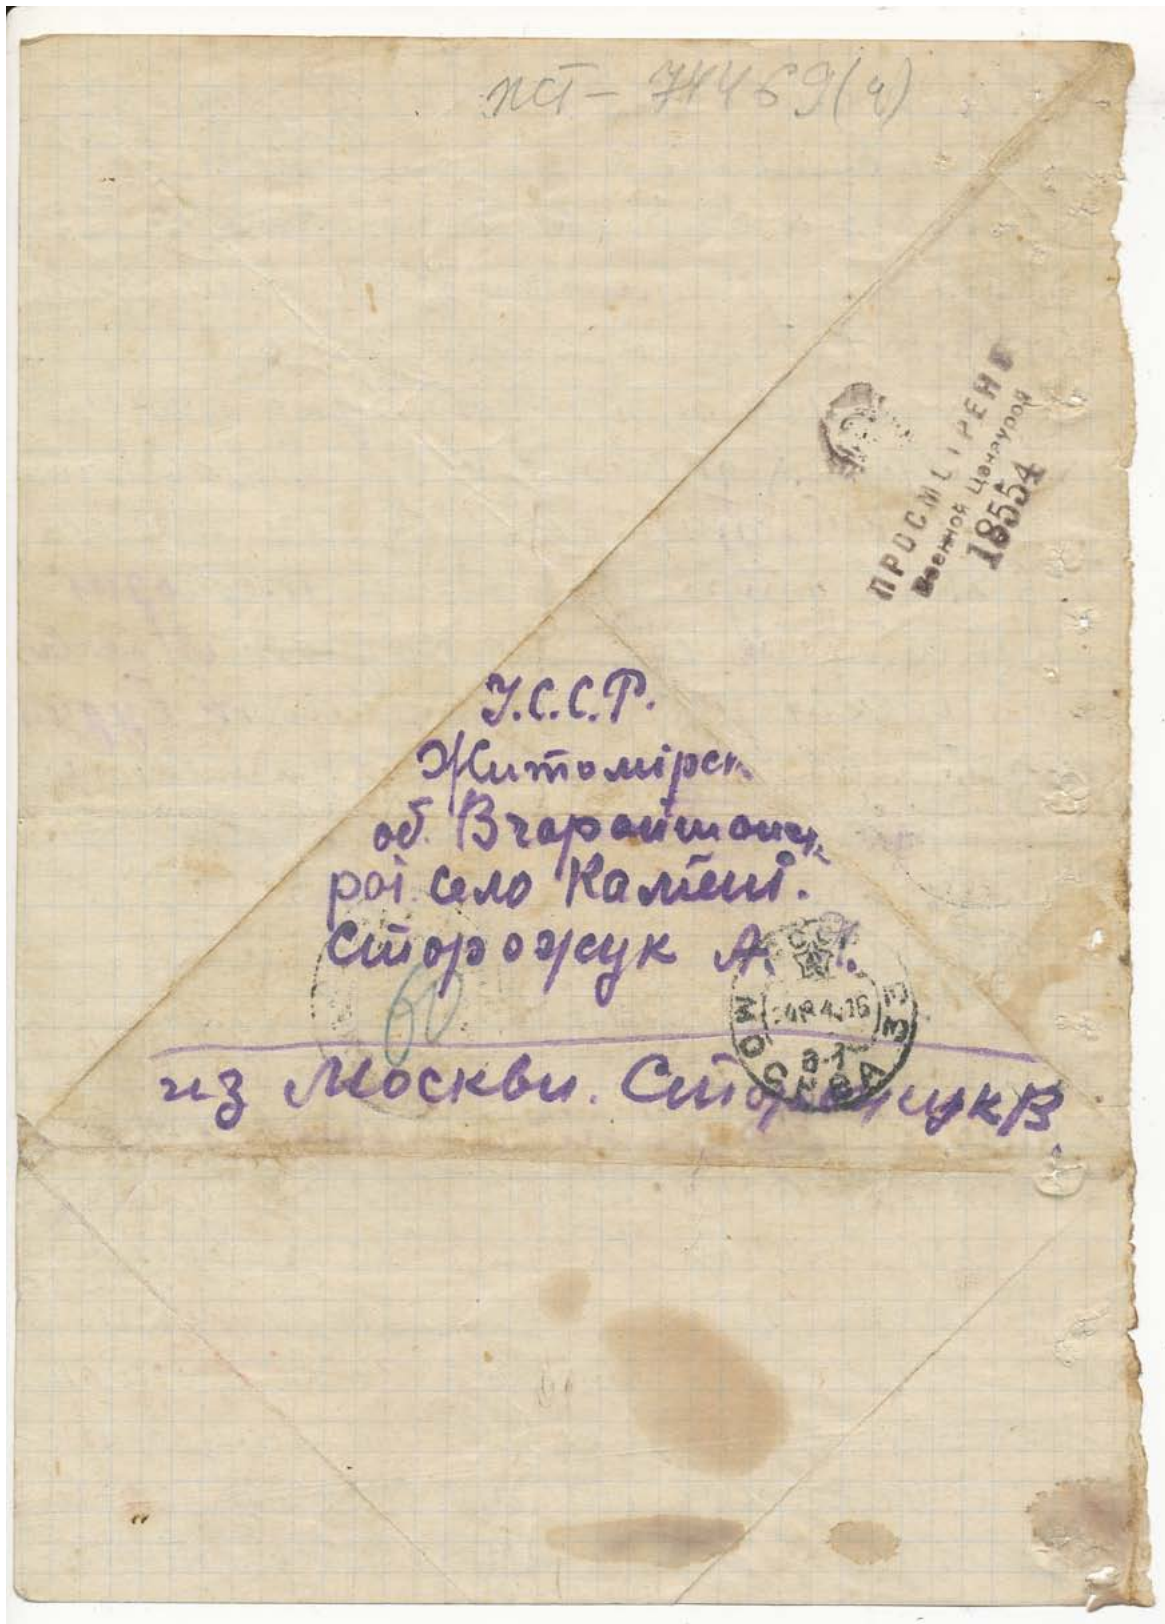 пст - 71469(ч)
ПРОСМОТРЕНО
Военной Цензурой
18554
У.С.С.Р.
Житомірск
об. Вчорайшанск
рої село Камені.
Сторожук А.
60
МОСКВА 33
из Москви. Сторожук В.